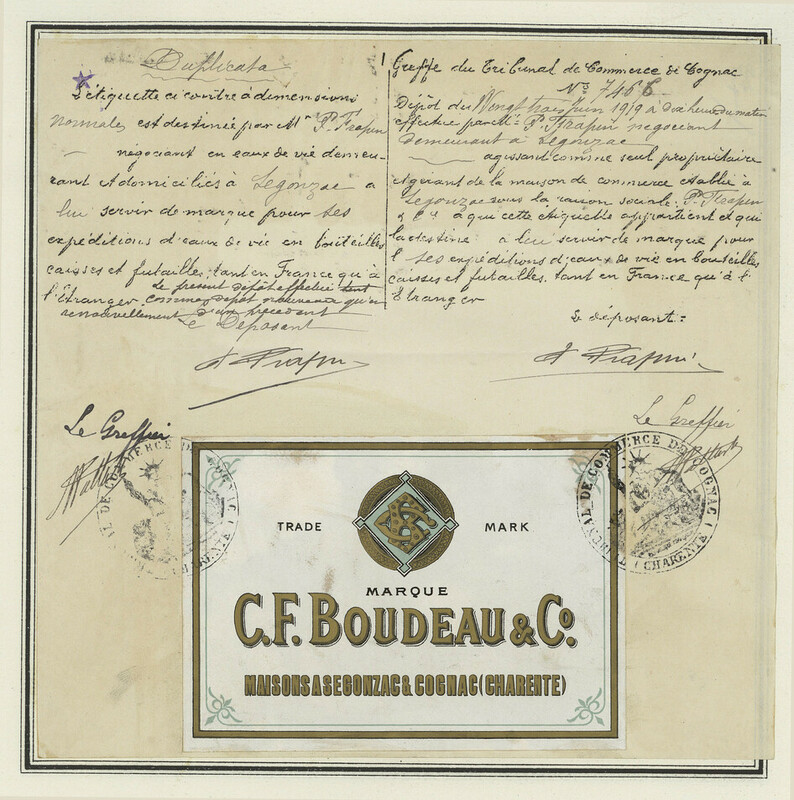 Duplicata
L'étiquette ci contre à dimensions
normales est destinée par Mr P. Frapin
négociant en eaux de vie demeu-
rant et domiciliés à Segonzac a
lui servir de marque pour ses
expéditions d'eaux de vie en bouteilles
caisses et futailles, tant en France qu'à
l'Etranger le présent dépôt effectué tant
comme dépôt nouveau qu'en
renouvellement d'un précédent
Le Déposant
P. Frapin
Le Greffier
Greffe du Tribunal de Commerce de Cognac
No 7466
Dépôt du Vingt trois Juin 1919 à dix heures du matin
effectué par Mr P. Frapin négociant
demeurant à Segonzac
agissant comme seul propriétaire
et gérant de la maison de commerce établie à
Segonzac sous la raison sociale: P. Frapin
& Cie à qui cette étiquette appartient et qui
la destine a leur servir de marque pour
ses expéditions d'eaux de vie en bouteilles
caisses et futailles, tant en France qu'à l'
Etranger
Le déposant:
P. Frapin
Le Greffier
TRIBUNAL DE COMMERCE DE COGNAC (CHARENTE)
TRIBUNAL DE COMMERCE DE COGNAC (CHARENTE)
TRADE MARK
MARQUE
C.F. BOUDEAU & Co.
MAISONS A SEGONZAC & COGNAC (CHARENTE)